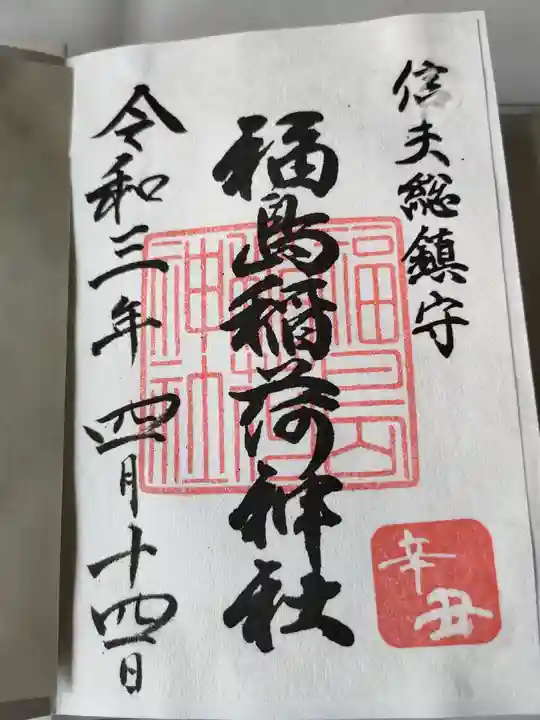 信夫総鎮守
福島稲荷神社
福島稲荷神社
辛丑
令和三年四月十四日